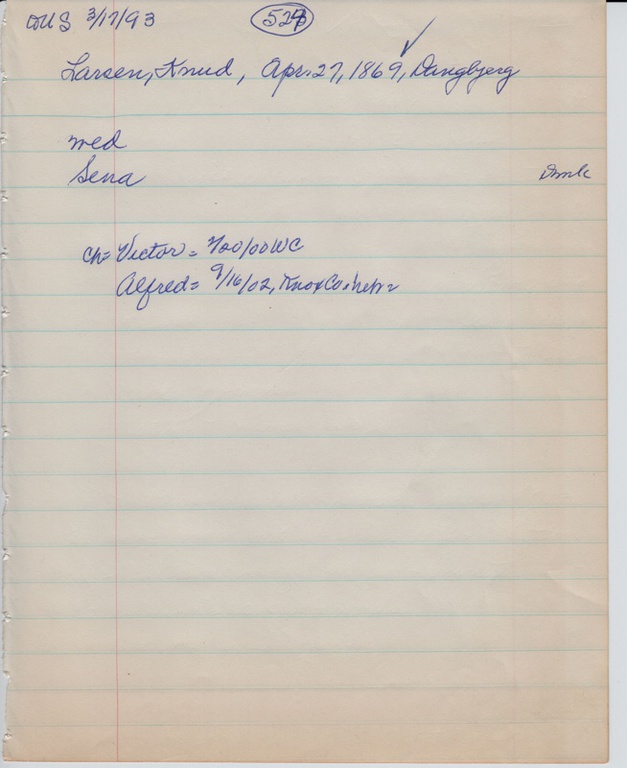 3/17/93
Larsen, Knud, Apr. 27, 1869, Dangbjerg
med
Sena
Dmk
Ch= Victor = 7/20/00 WC
Alfred = 9/16/02, Knox Co. Nebr=